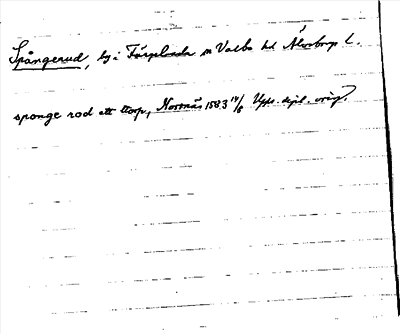 Spångerud, by i Färgelanda sn Valbo hd Älvsborgs l.
sponge rod ett torp, Norrnäs 1583 14/6 Upps. dipl. orig.